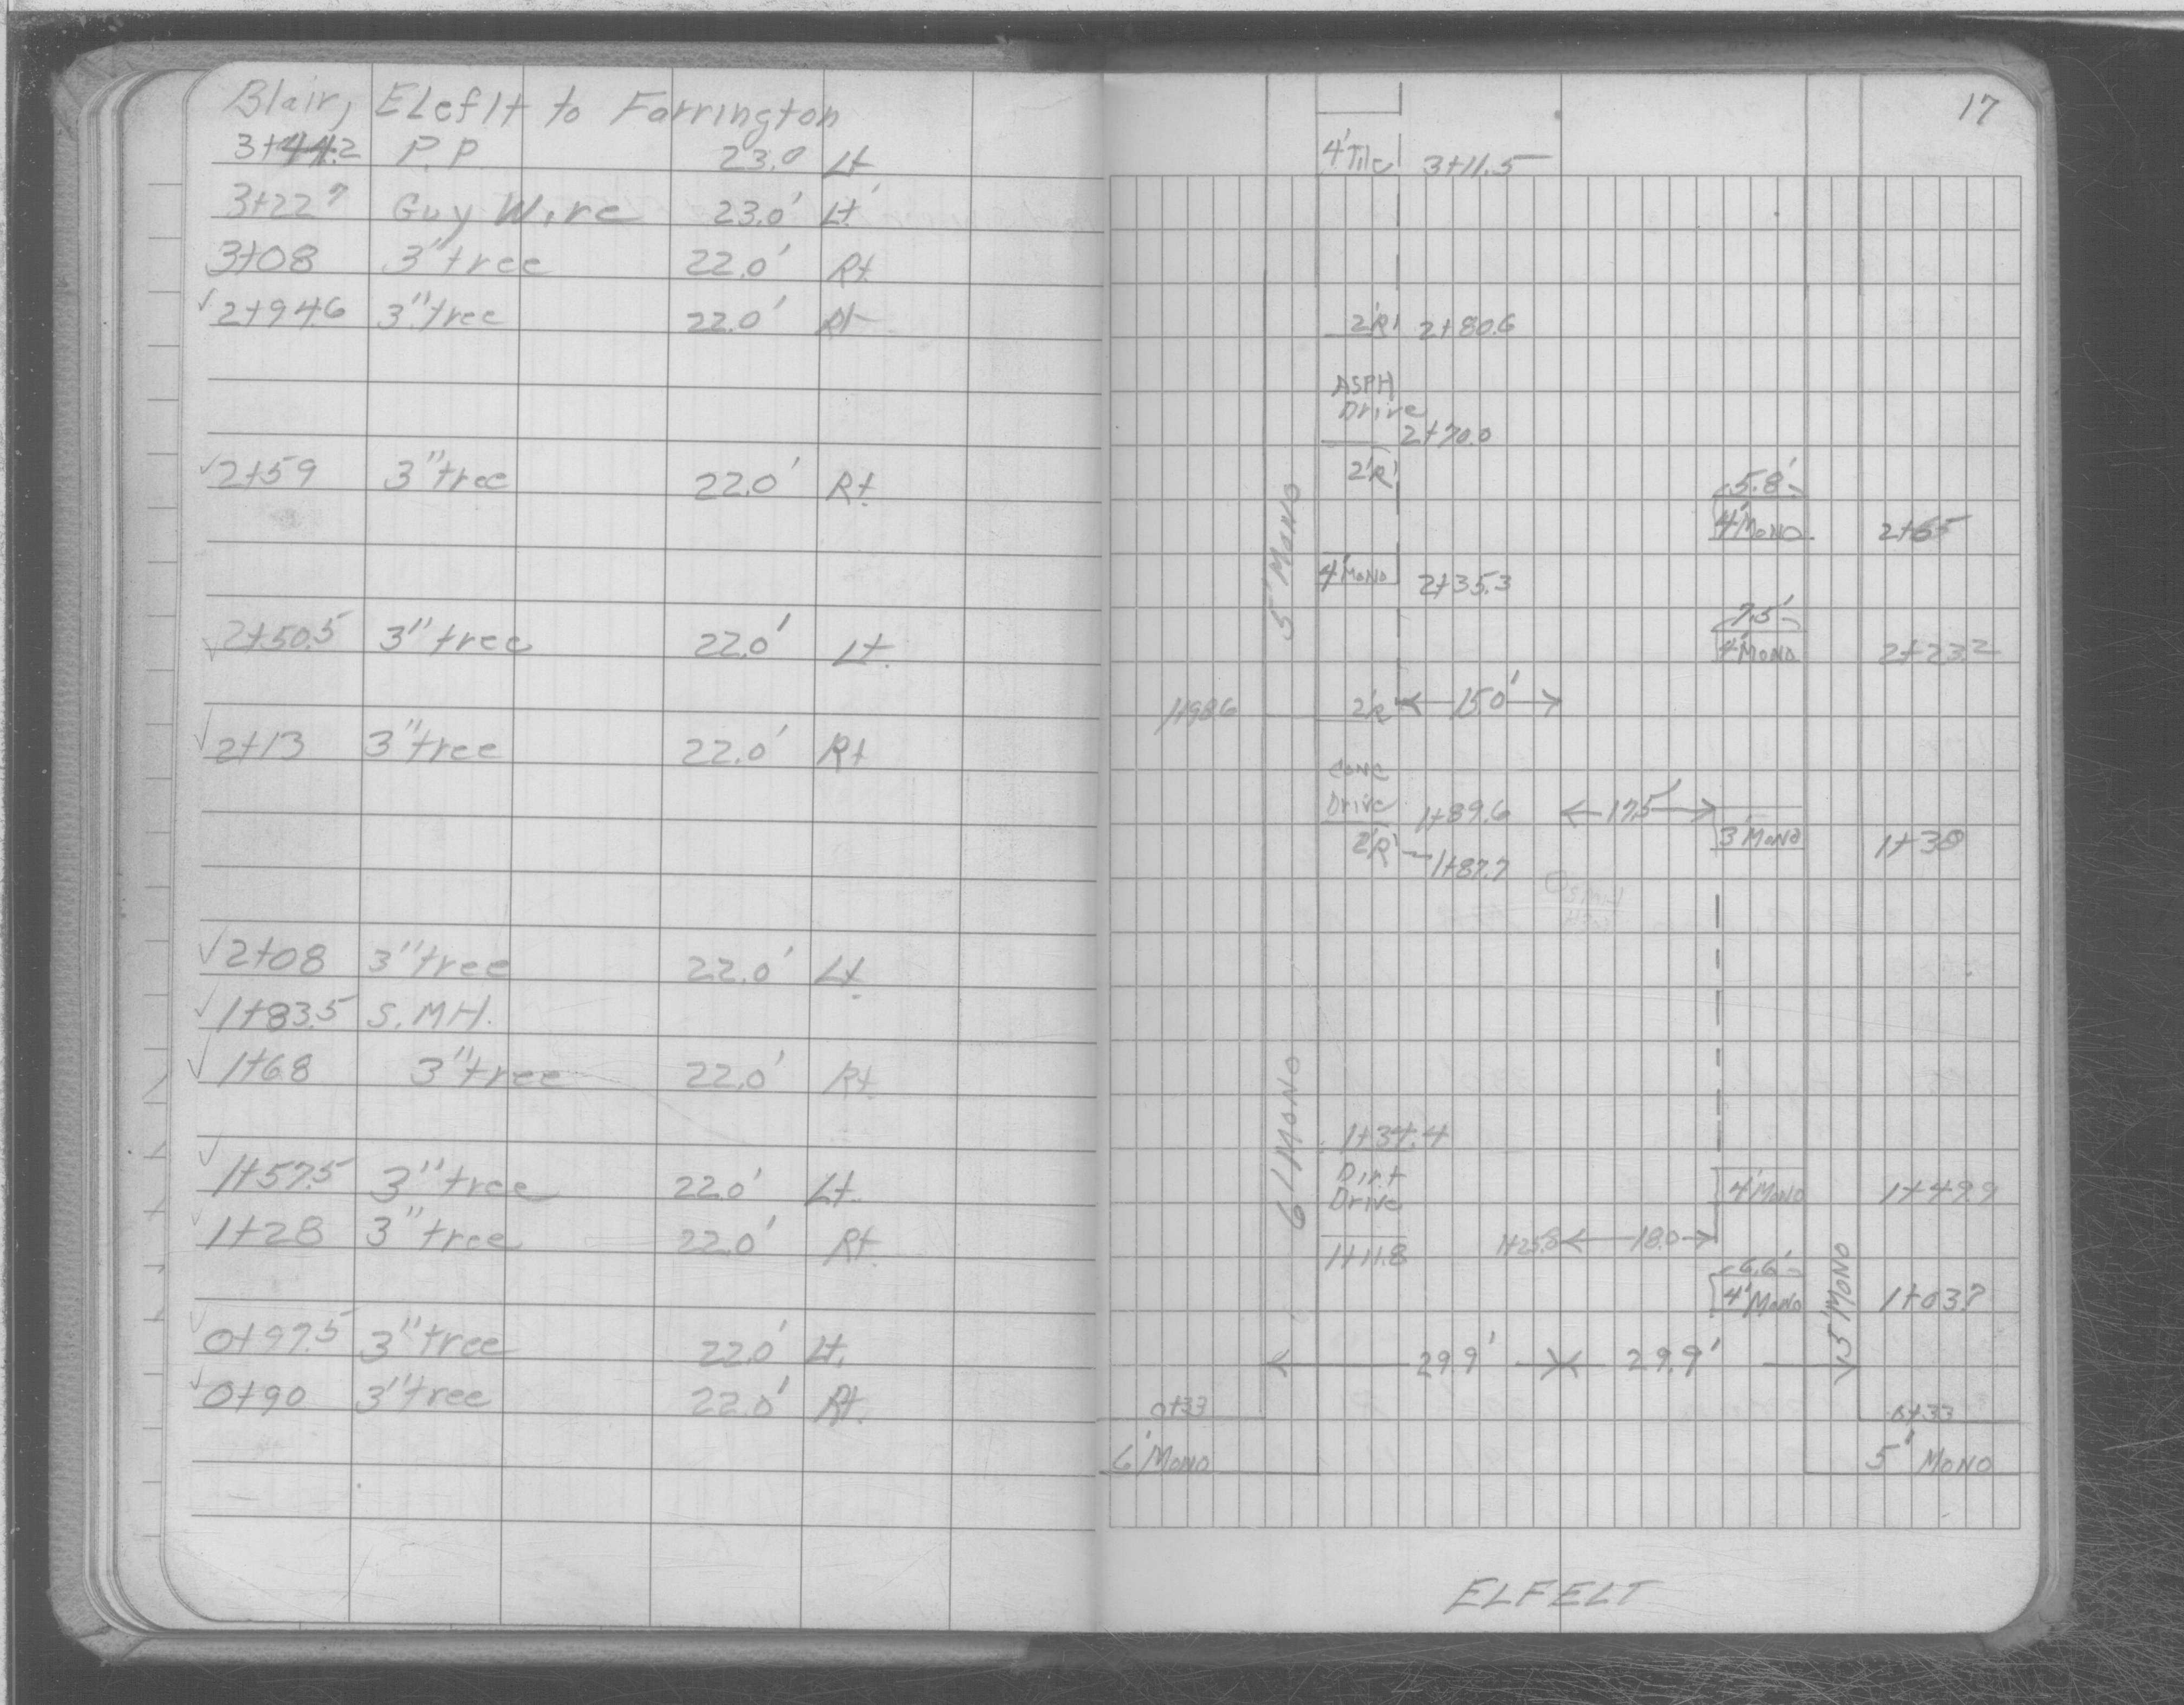 Blair, ELeflt to Farrington
3+44.2 P.P. 23.0 Lt
3+22⁹ Guy Wire 23.0' Lt
3+08 3" tree 22.0' Rt
✓ 2+94.6 3" tree 22.0' Rt
✓ 2+59 3" tree 22.0' Rt.
✓ 2+50.5 3" tree 22.0' Lt.
✓ 2+13 3" tree 22.0' Rt
✓ 2+08 3" tree 22.0' Lt.
✓ 1+83.5 S.MH.
✓ 1+68 3" tree 22.0' Rt
✓ 1+57.5 3" tree 22.0' Lt.
✓ 1+28 3" tree 22.0' Rt.
✓ 0+97.5 3" tree 22.0' Lt.
✓ 0+90 3" tree 22.0' Rt.
17
4' Tile 3+11.5
2'R 2+80.6
ASPH
Drive
2+70.0
2'R
5.8'
4' MONO 2+65
5' MONO
4' MONO 2+35.3
7.5'
4' MONO 2+23.2
1+98.6 2'R 15.0'
CONC
Drive 1+89.6 17.5'
2'R 1+87.7
3' MONO
6' MONO
1+34.4
Dirt
Drive
4' MONO 1+49.9
1+11.8 1+25.8 18.0
6.6'
4' MONO
5' MONO
29.9' 29.9'
0+33 0+33
6' MONO 5' MONO
ELFELT